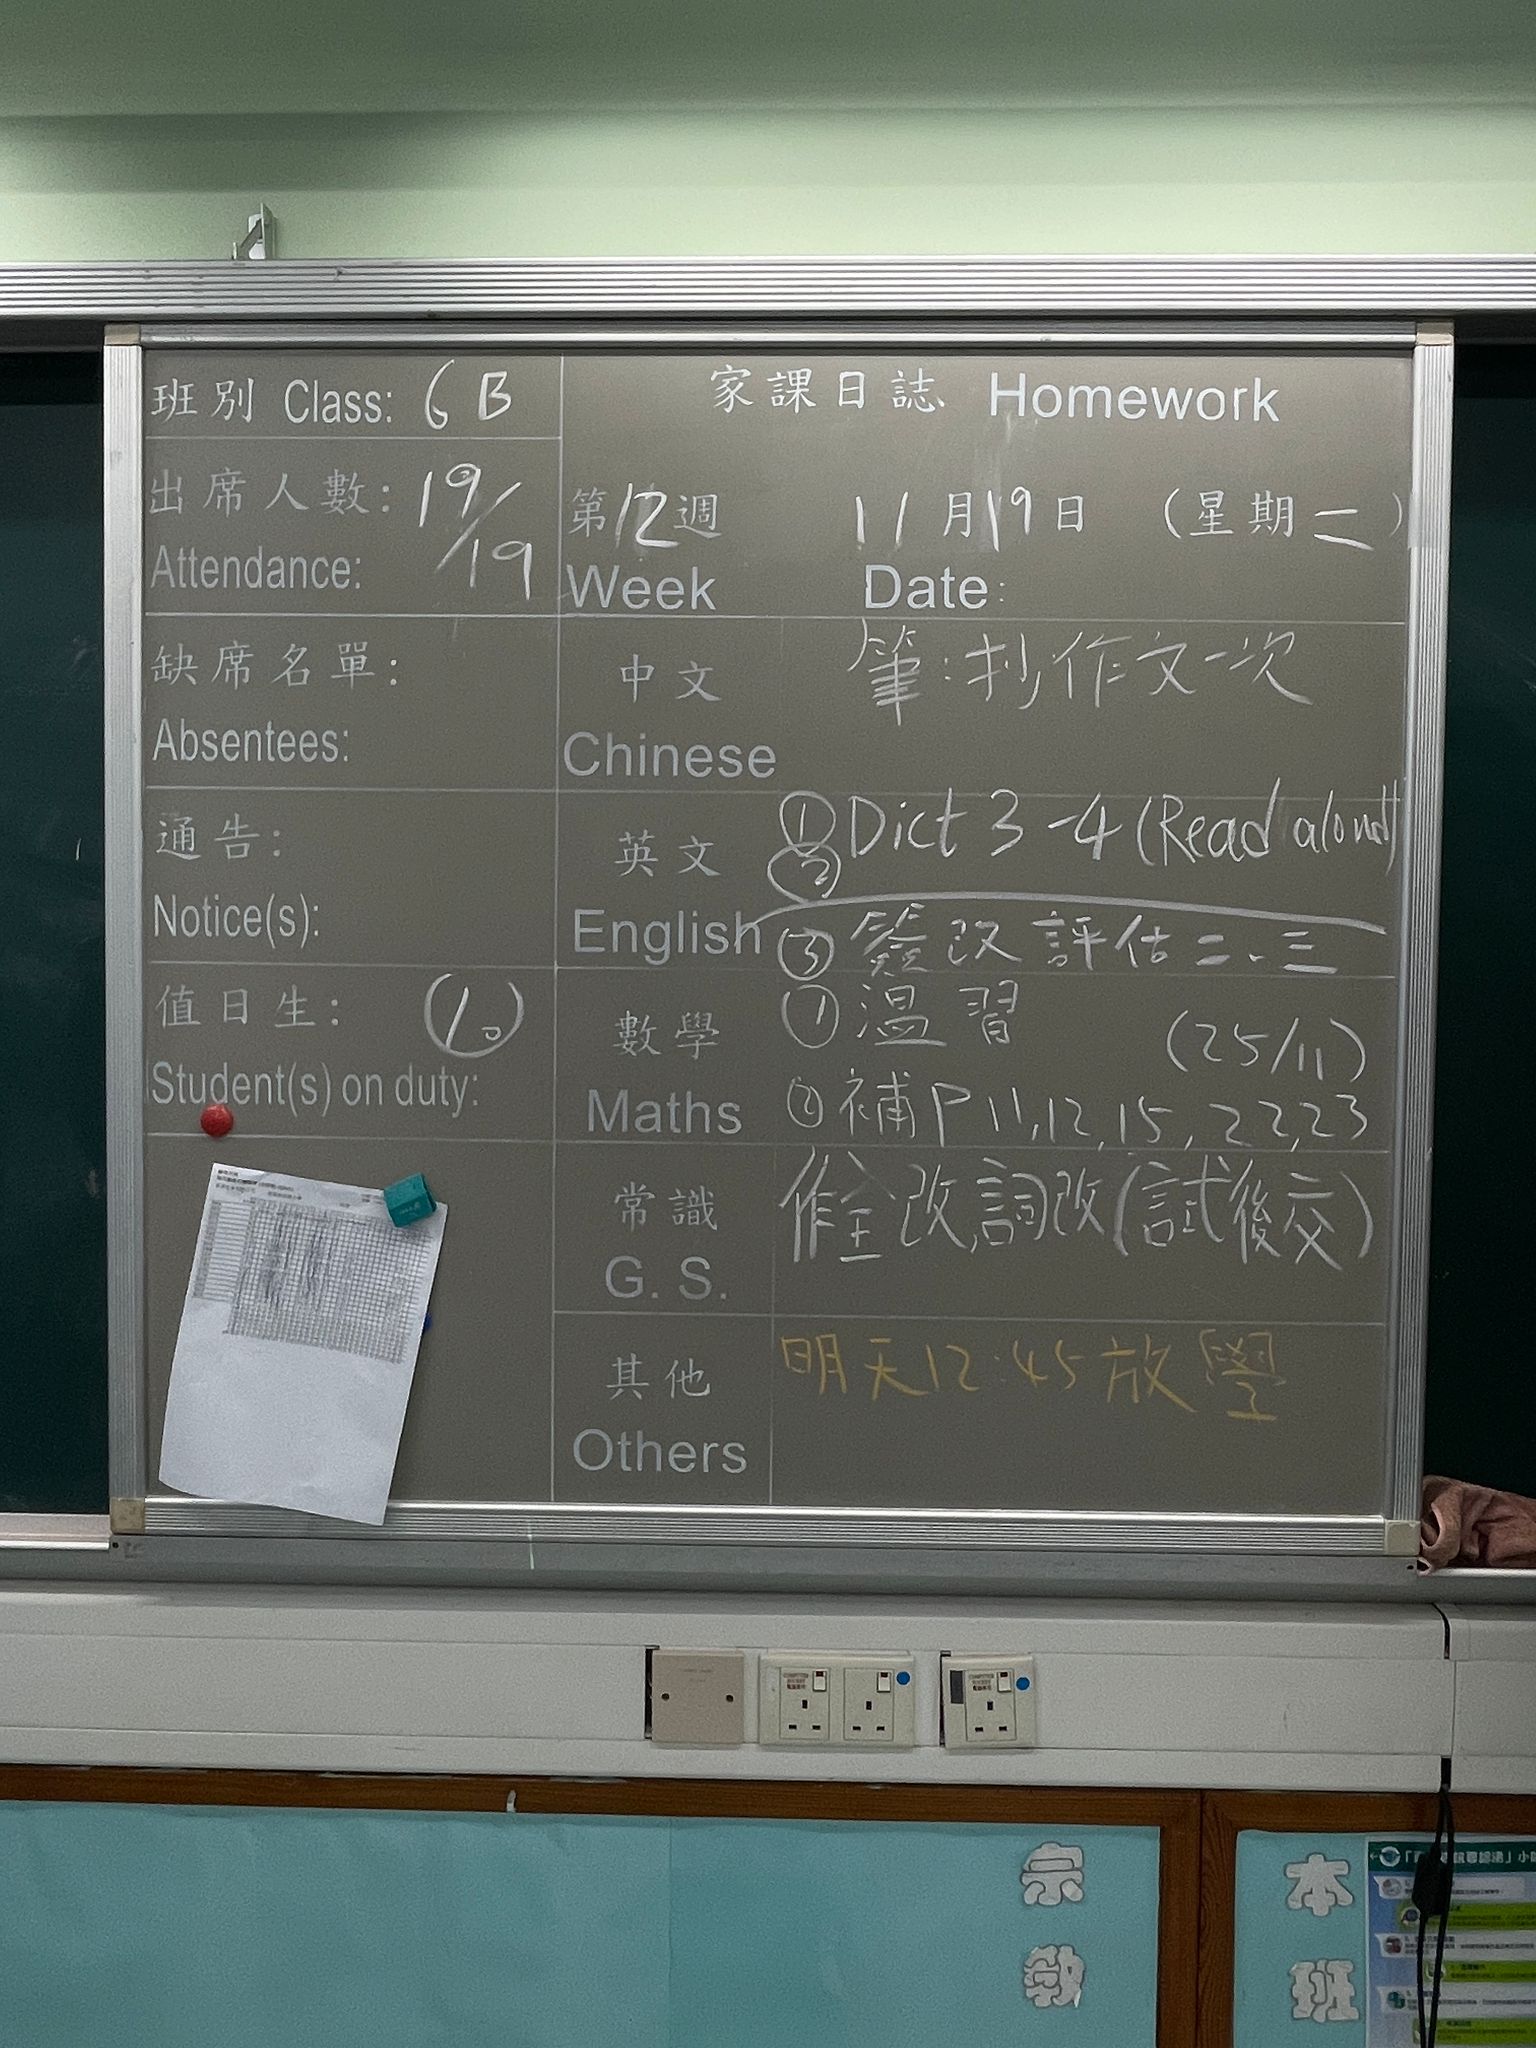 班別 Class: 6B
家課日誌 Homework
出席人數: 19/19
Attendance:
第12週 11月19日 (星期二)
Week Date:
缺席名單:
Absentees:
中文 筆:抄作文一次
Chinese
通告:
Notice(s):
英文 ① Dict 3-4 (Read aloud)
②
English ③ 簽改評估二、三
值日生:
Student(s) on duty:
數學 ① 溫習 (25/11)
Maths ② 補 P11,12,15,22,23
常識 作全改,詞改(試後交)
G. S.
其他 明天12:45放學
Others
宗教
本班